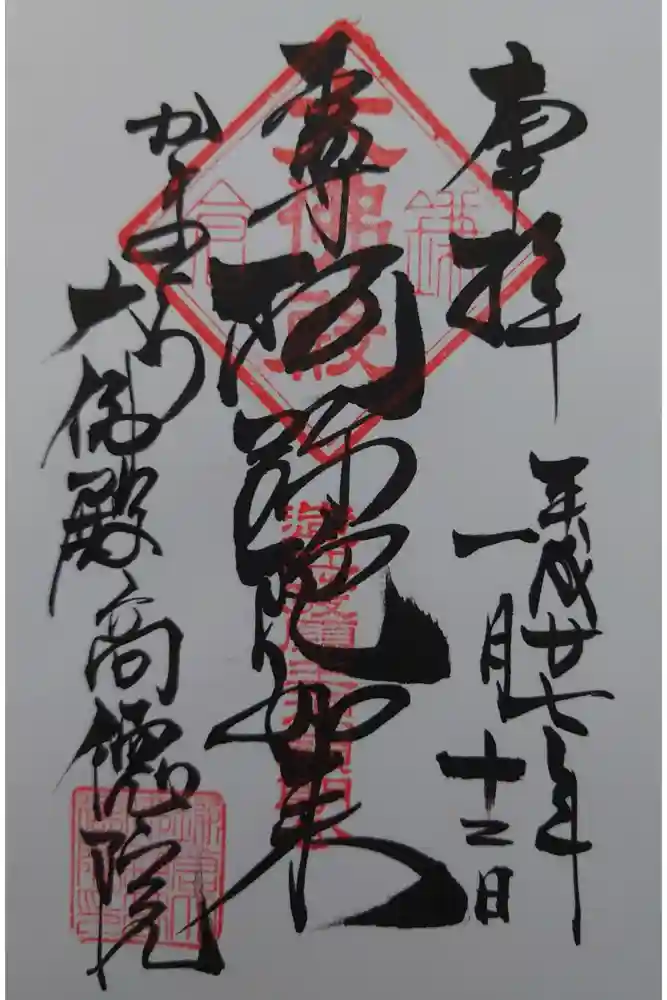 奉拝
平成廿七年
一月十二日
本尊
阿弥陀如来
大佛殿
鎌倉
大佛殿高徳院